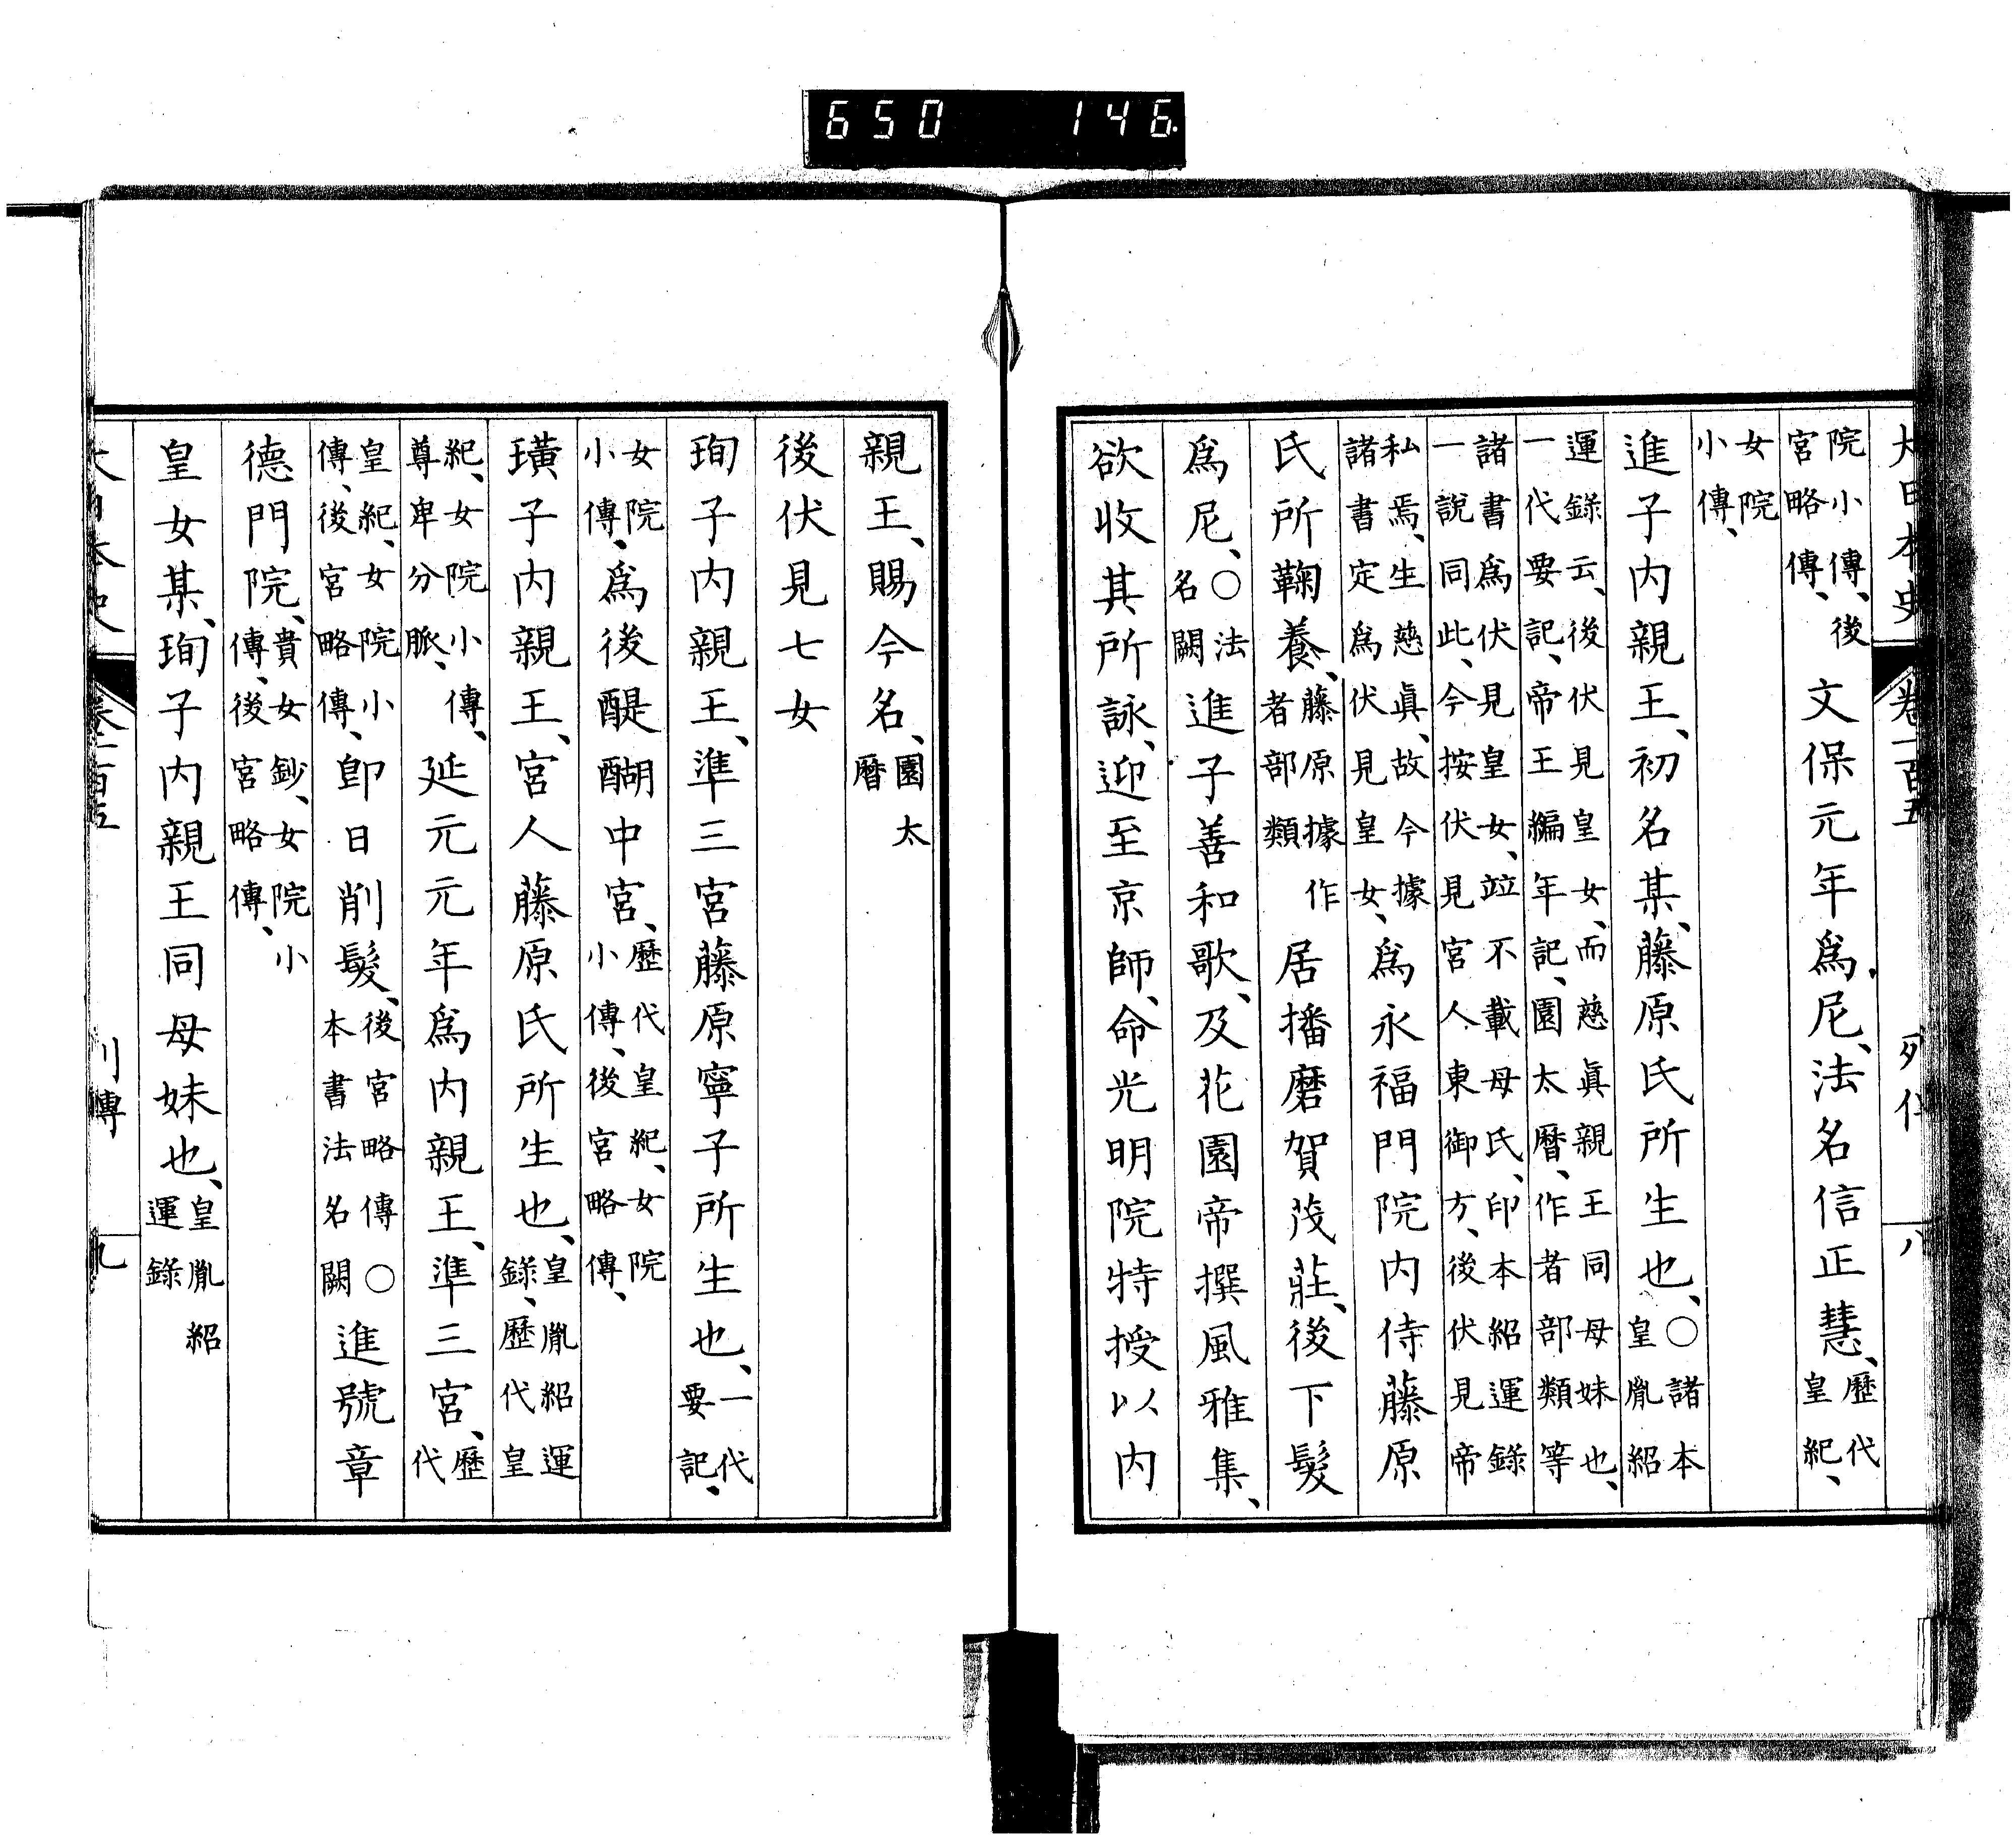 大日本史 卷一百五 列傳 八
院小傳、後宮略傳、文保元年爲尼、法名信正慧、歷代皇紀、
女院小傳、
進子内親王、初名某、藤原氏所生也、○諸本皇胤紹
運錄云、後伏見皇女、而慈眞親王同母妹也、一代要記、帝王編年記、園太曆、作者部類等
諸書爲伏見皇女、竝不載母氏、印本紹運錄一說同此、今按伏見宮人東御方、後伏見帝
私焉、生慈眞、故今據諸書定爲伏見皇女、爲永福門院内侍藤原
氏所鞠養、藤原據作者部類居播磨賀茂莊、後下髮
爲尼、○法名闕進子善和歌、及花園帝撰風雅集、
欲收其所詠、迎至京師、命光明院特授以内
親王、賜今名、園太曆
後伏見七女
珣子内親王、準三宮藤原寧子所生也、一代要記、
女院小傳、爲後醍醐中宮、歷代皇紀、女院小傳、後宮略傳、
璜子内親王、宮人藤原氏所生也、皇胤紹運錄、歷代皇
紀、女院小傳、尊卑分脈、延元元年爲内親王、準三宮、歷代
皇紀、女院小傳、後宮略傳、卽日削髮、後宮略傳○本書法名闕進號章
德門院、貴女鈔、女院小傳、後宮略傳、
皇女某、珣子内親王同母妹也、皇胤紹運錄
大日本史 卷一百五 列傳 九
650 146.